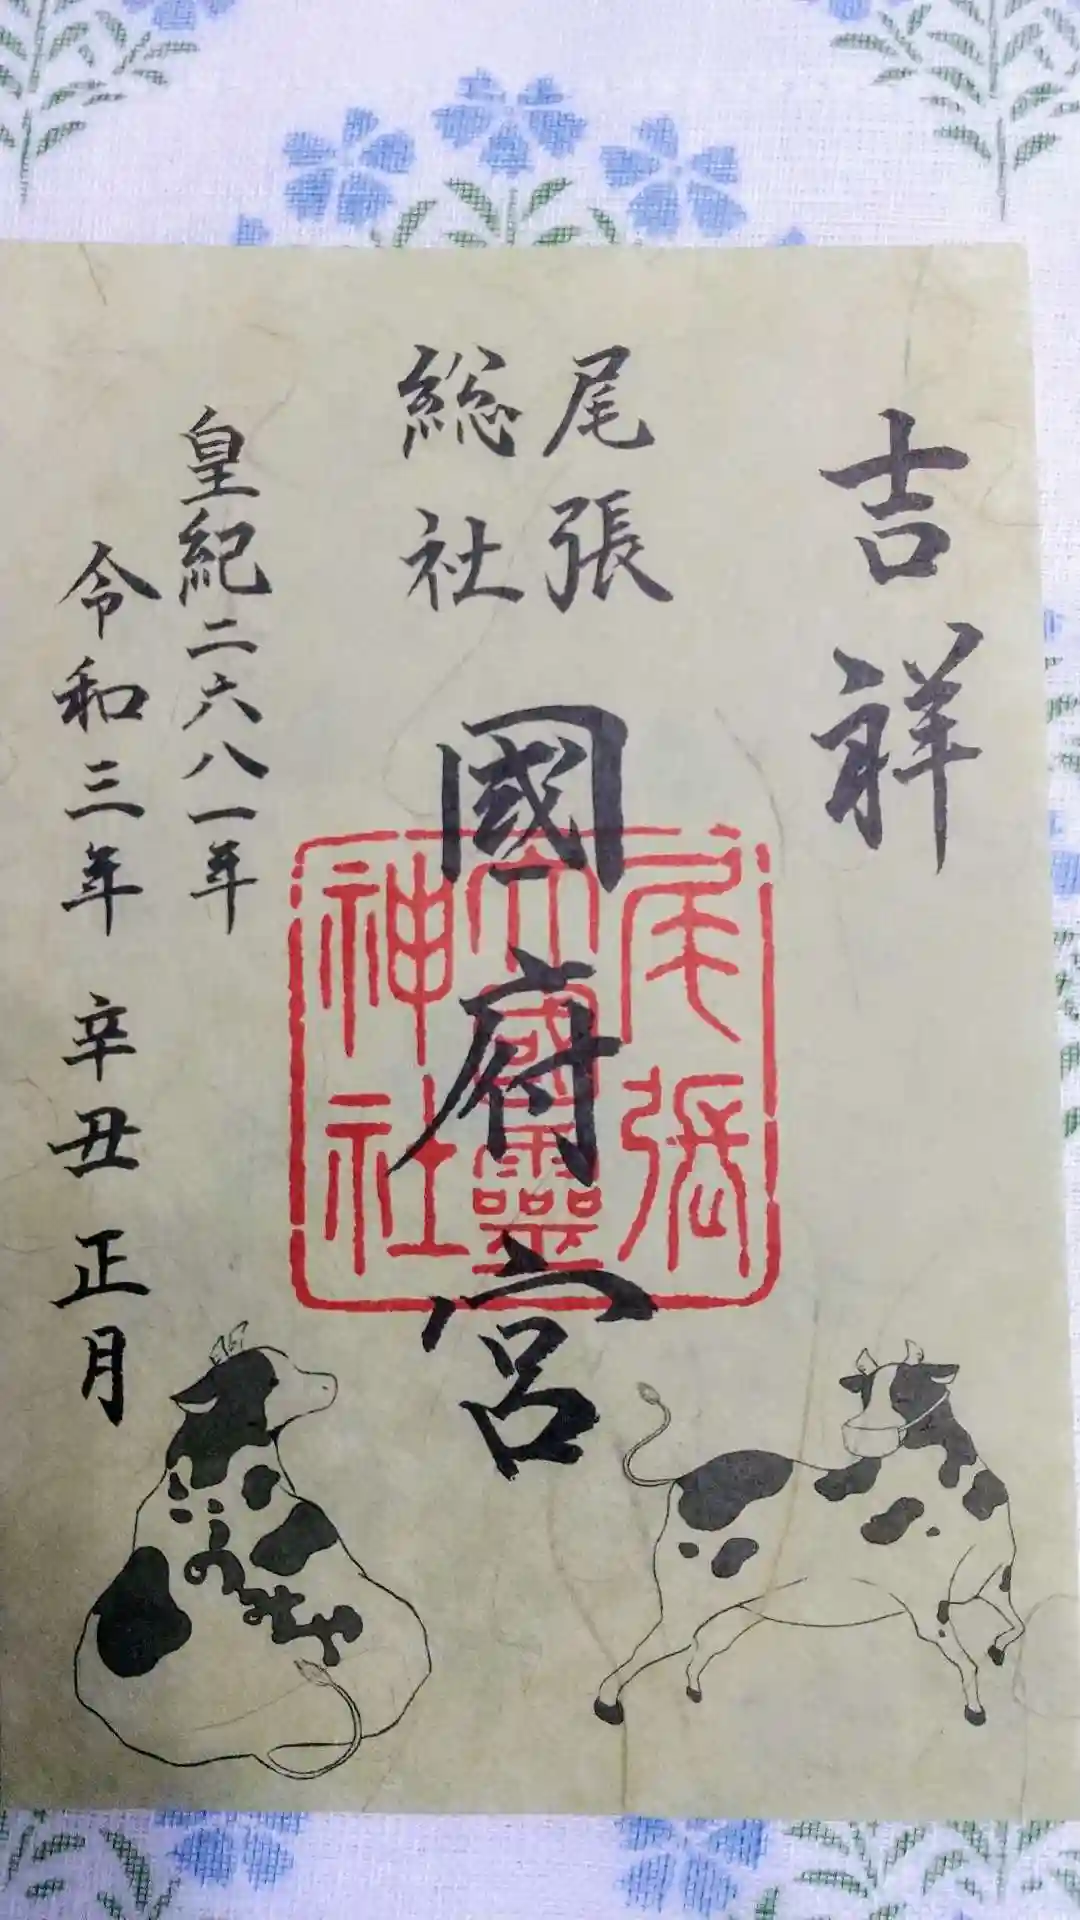 吉祥
尾張
総社
國府宮
尾張
大國霊
神社
皇紀二六八一年
令和三年 辛丑 正月
こうのみや